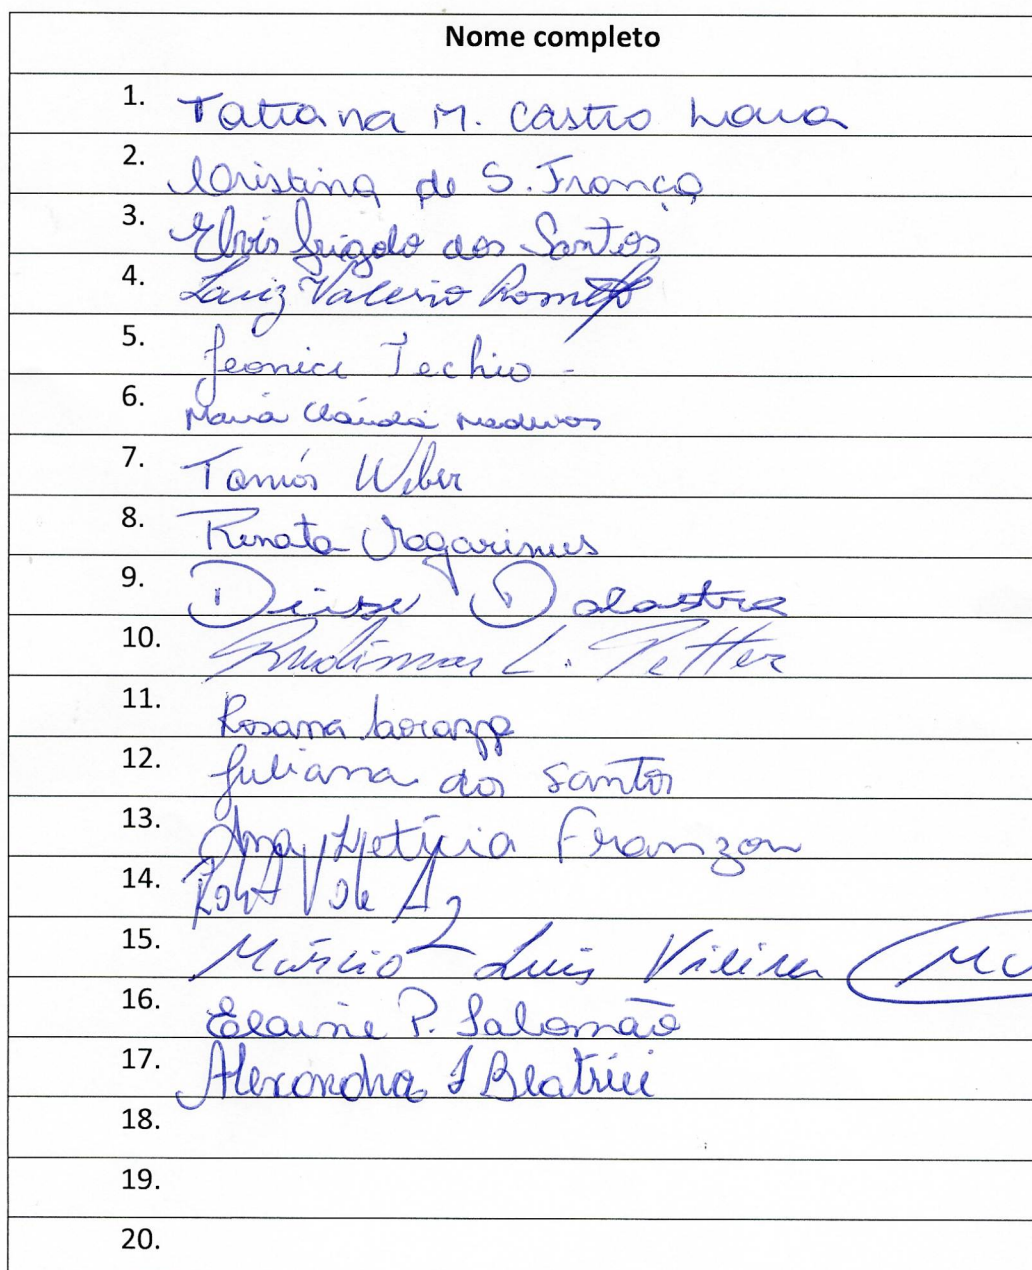 Nome completo
1. Tatiana M. Castro
2. Cristina de S. França
3. Elvis Frigolo dos Santos
4. Luiz Valerio
5. Jeonice Techio -
6. Maria Claudia Medeiros
7. Weber
8. Renata
9. Deise Dalastra
10. Rudimar L. Petter
11. Rosana
12. Juliana dos Santos
13. Ana Letícia Franzon
14.
15. Márcio Luis Vieira
16. Elaine P. Salomão
17. Beatrici
18.
19.
20.